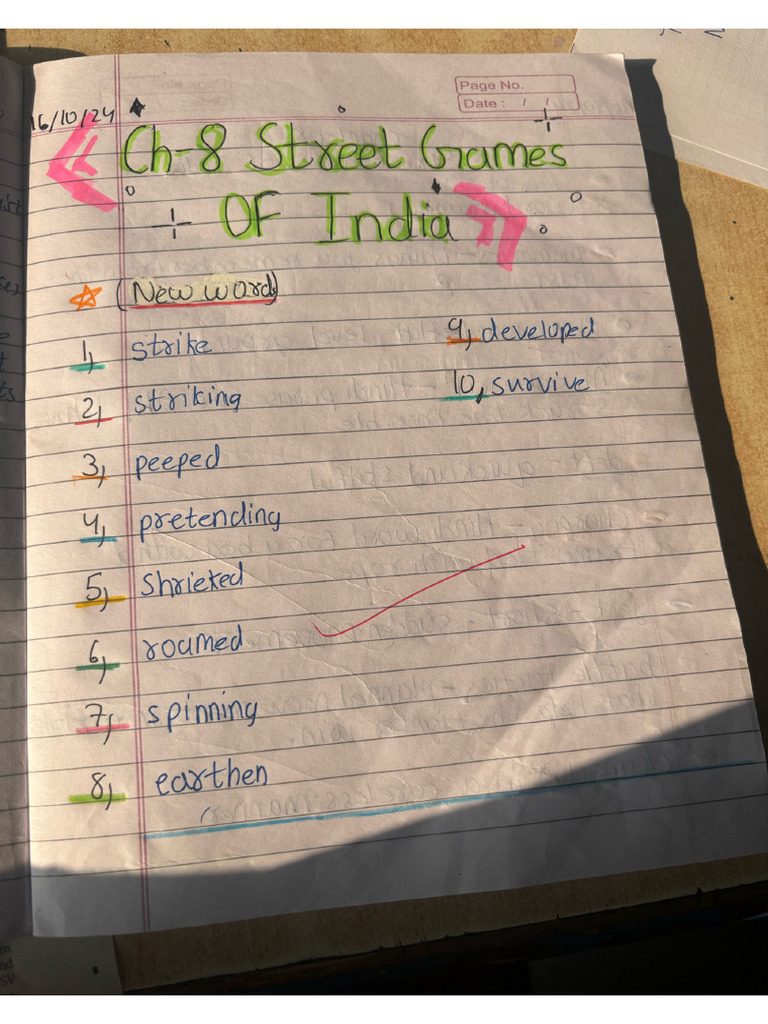 Page No.
Date : / /
16/10/24
Ch-8 Street Games
OF India
(New word)
1, strike
2, striking
3, peeped
4, pretending
5, Shrieked
6, roamed
7, spinning
8, earthen
9, developed
10, survive